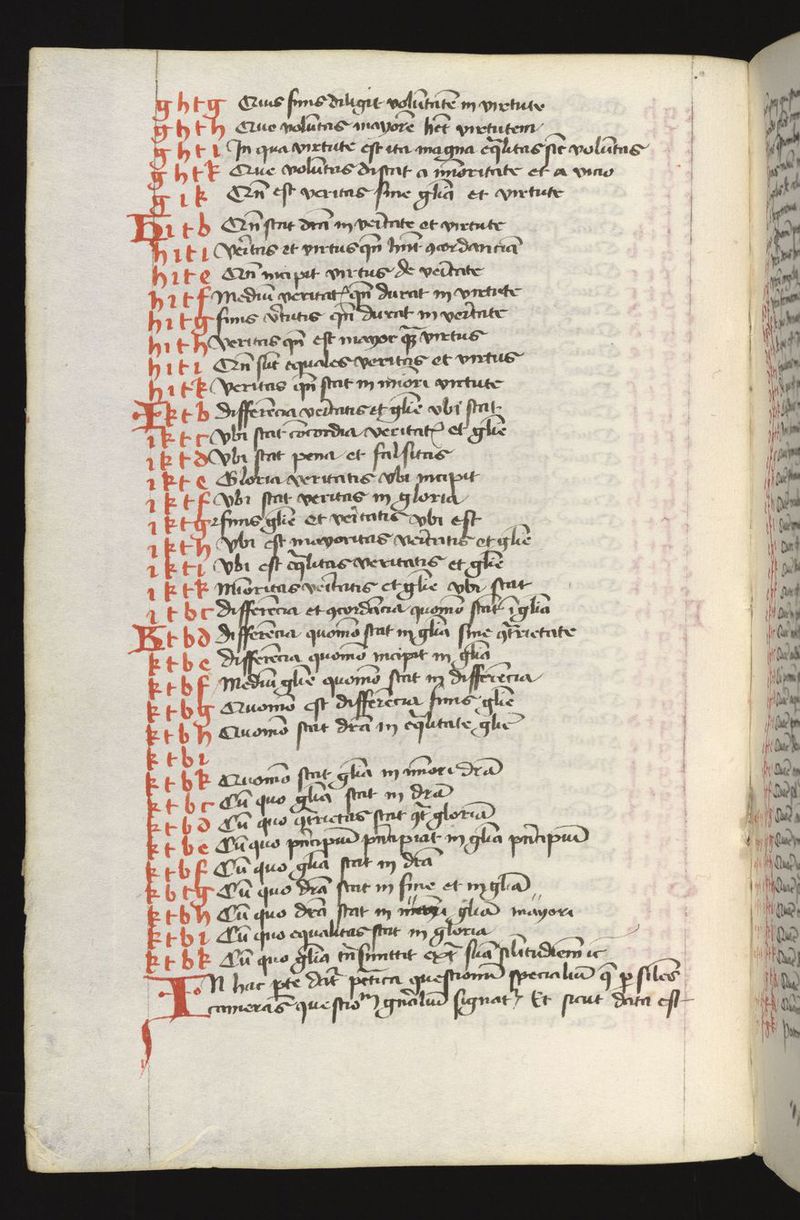 g h t g Cuius finis diligit volūtatē in virtute
g h t h Cuiᵒ volūtas mayorē het virtutem
g h t i In qua virtute est ita magna eq̄litas sic̄ voluntas
g h t k Cuiᵒ volūtas distat a mīoritate et a vicio
g i k Qn̄ est veritas sine gl̄ia et virtute
H i t b Qn̄ stat dr̄ia in veritate et virtute
h i t i Veritas et virtus qn̄ hn̄t ɔcordanciā
h i t e Qn̄ incipit virtus de veritate
h i t f Mediū veritatꝭ qn̄ durat in virtute
h i t g finis v̄tutis qn̄ durat in veritate
h i t h Veritas qn̄ est mayor quā virtus
h i t i Qn̄ sūt equales veritas et virtus
h i t k Veritas qn̄ stat in mīori virtute
I k t b differēcia veritatis et glīe vbi stat
i k t c Vbi stat cōcordia veritatꝭ et glīe
i k t d Vbi stat pena et falsitas
i k t e Gloria veritatis vbi incipit
i k t f Vbi stat veritas in gloria
i k t g finis glīe et veritatis vbi est
i k t h Vbi est mayoritas veritatis et glīe
i k t i Vbi est eq̄litas veritatis et glīe
i k t k Mīoritas veritatis et glīe vbi stat
i t b c differēcia et ɔcordācia quomō stāt ī glīa
K t b d differēcia quomō stat in glīa sine ɔtrietate
k t b e differēcia quomō incipit in glīa
k t b f Mediū glīe quomō stat in differēcia
k t b g Quomō est differēcia finis glīe
k t b h Quomō stat dr̄ia in eq̄litate glīe
k t b i
k t b k Quomō stat glīa in mīori dr̄ia
k t b c Cū quo glīa stat in dr̄ia
k t b d Cū quo ɔtrietas stat ɔt gloriā
k t b e Cū quo pn̄cipiū pn̄cipiat in glīa pn̄cipiū
k t b f Cū quo glīa stat in dr̄ia
k b t g Cū quo dr̄ia stat in fine et in glīa
k t b h Cū quo dr̄ia stat in glīa mayori
k t b i Cū quo equalitas stat in gloria
k t b k Cū quo glīa tn̄smittit ext̄ suā silitudinem ꝛc
In hac pte dat̄ pc̄tica questionū specialiū q̄ p siles
cameras questionū gn̄aliū signatꝭ Et sicut dc̄ta est